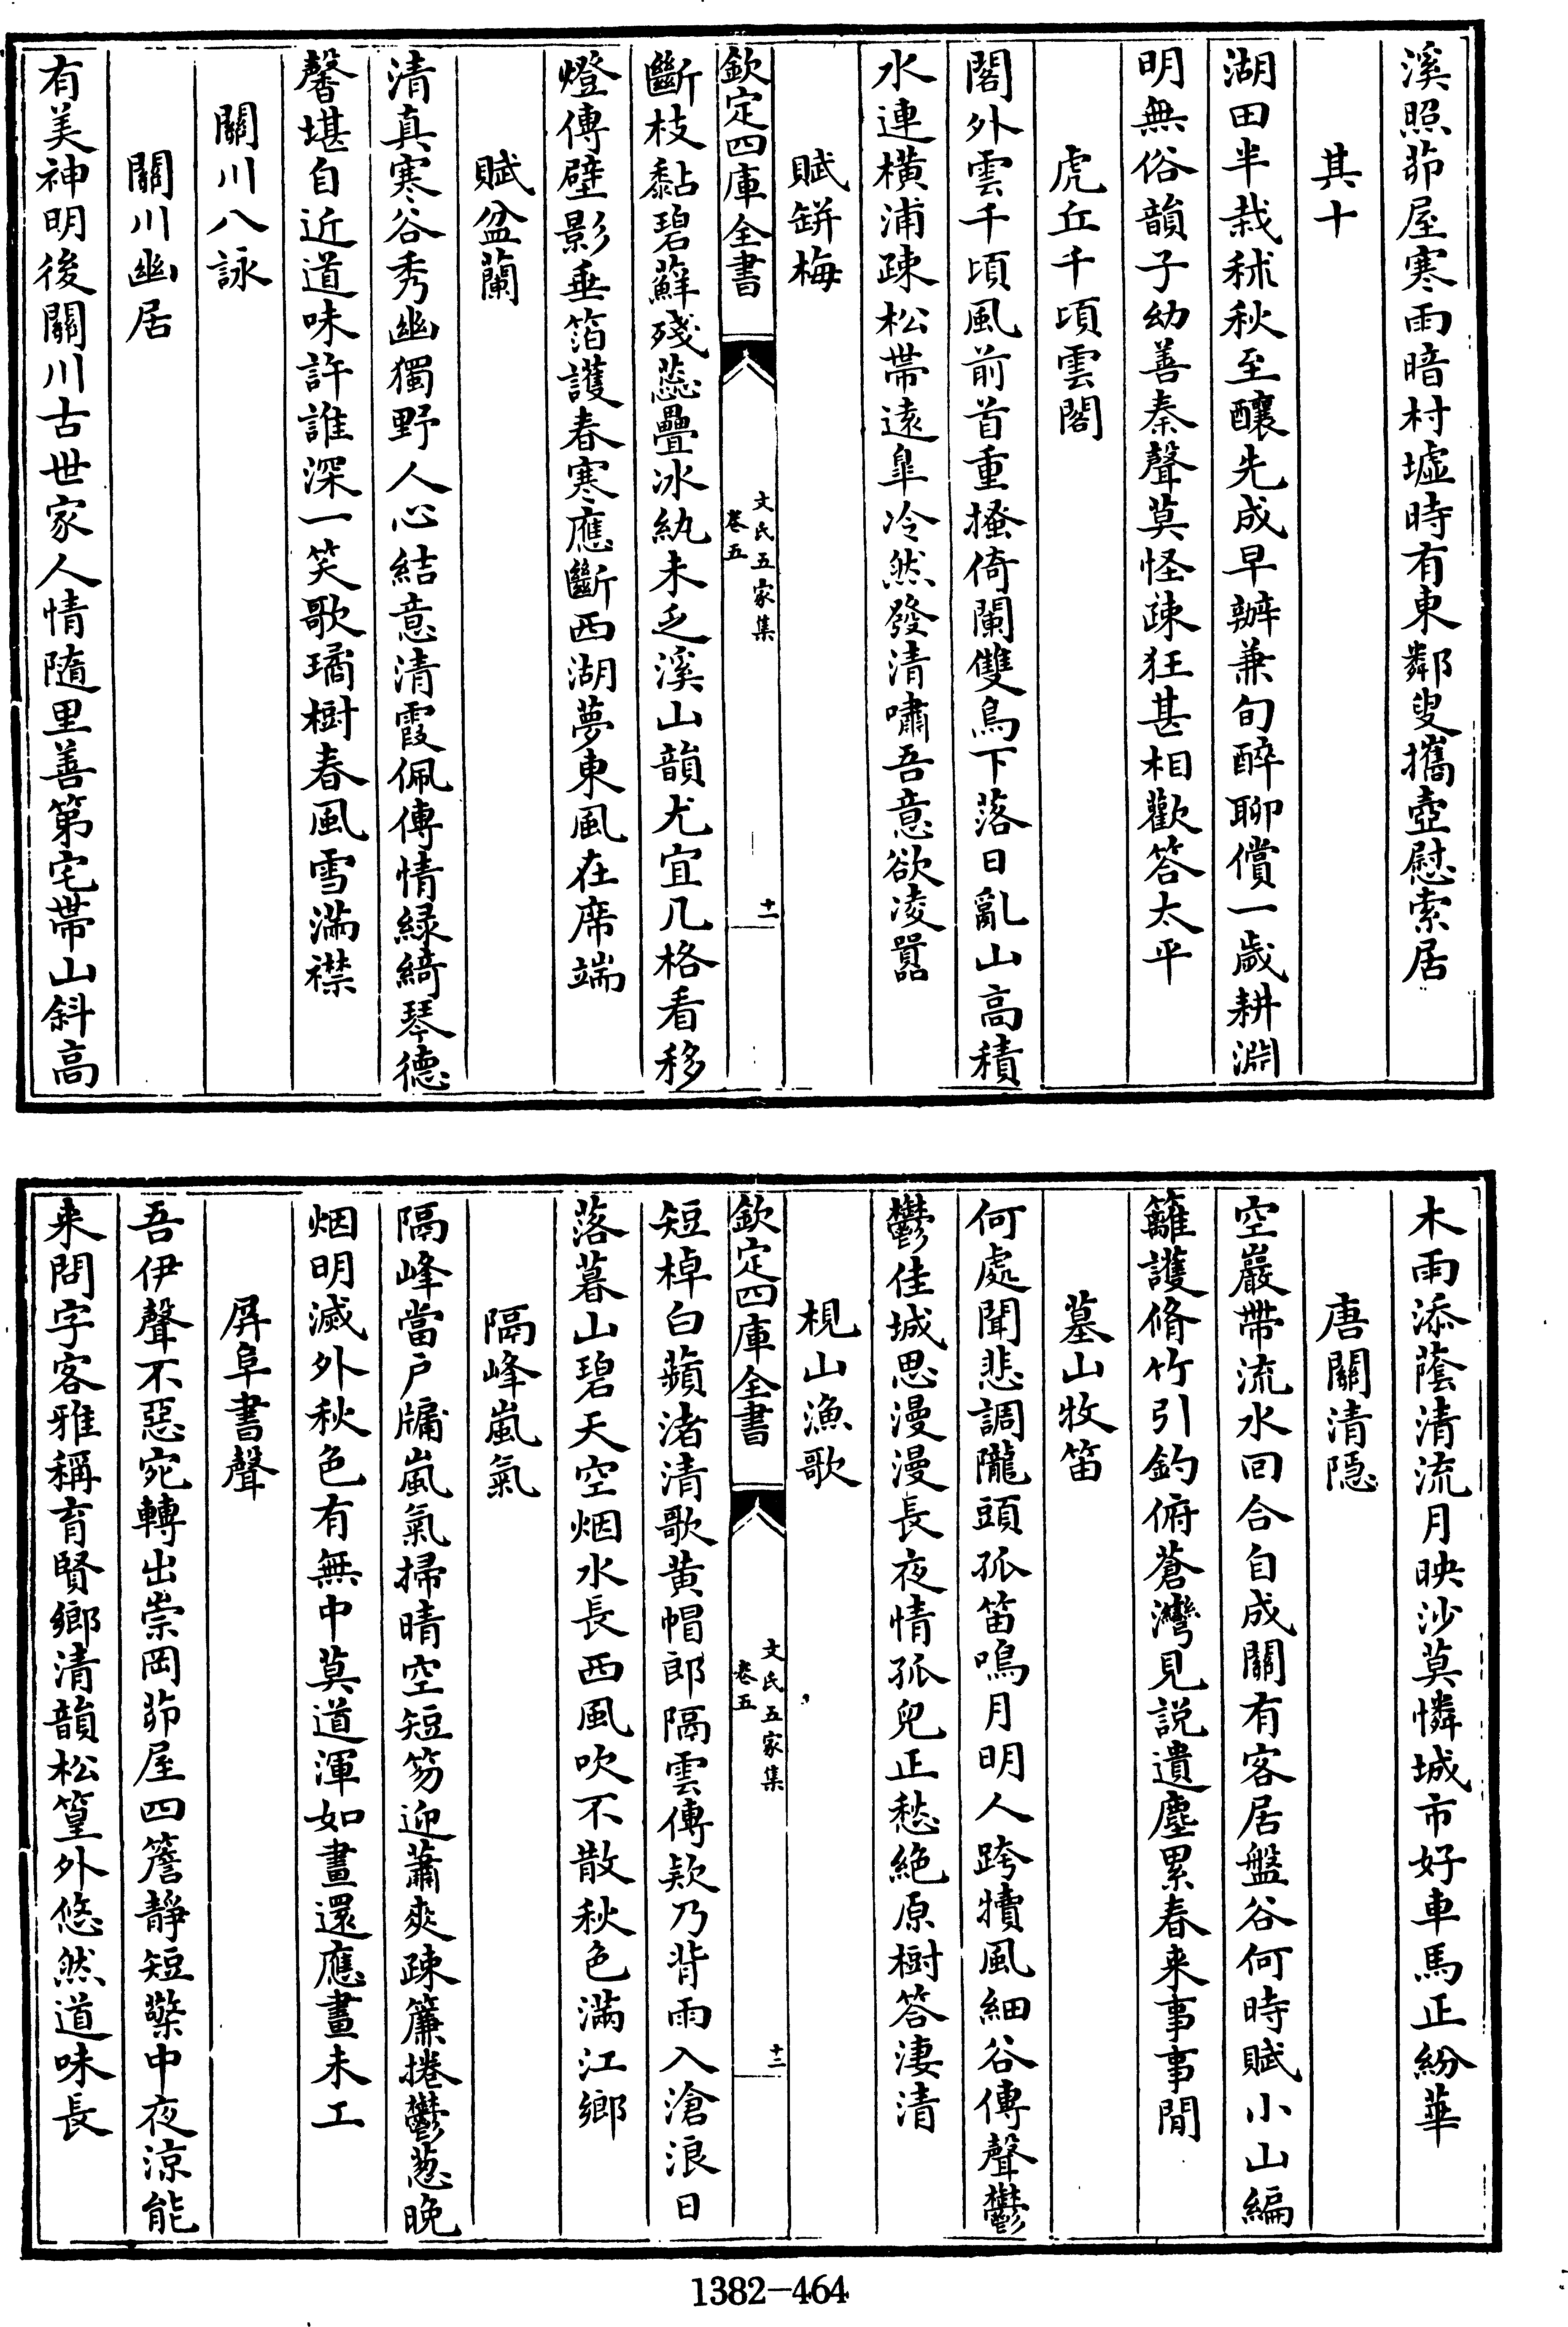 溪照茆屋寒雨暗村墟時有東鄰叟攜壺慰索居
其十
湖田半栽秫秋至釀先成早辦兼旬醉聊償一歲耕淵
明無俗韻子幼善秦聲莫怪疎狂甚相歡答太平
虎丘千頃雲閣
閣外雲千頃風前首重搔倚闌雙鳥下落日亂山高積
水連橫浦疎松帶遠臯冷然發清嘯吾意欲凌嚣
賦缾梅
欽定四庫全書
文氏五家集
卷五
十一
斷枝黏碧蘚殘蕊疊冰紈未乏溪山韻尤宜几格看移
燈傳壁影垂箔護春寒應斷西湖夢東風在席端
賦盆蘭
清真寒谷秀幽獨野人心結意清霞佩傳情緑綺琴德
馨堪自近道味許誰深一笑歌璚樹春風雪滿襟
關川八詠
關川幽居
有美神明後關川古世家人情随里善第宅帶山斜高
木雨添蔭清流月映沙莫憐城市好車馬正紛華
唐關清隱
空巖帶流水回合自成關有客居盤谷何時賦小山編
籬護脩竹引釣俯蒼灣見説遺塵累春来事事閒
墓山牧笛
何處聞悲調隴頭孤笛鳴月明人跨犢風細谷傳聲鬱
鬱佳城思漫漫長夜情孤兒正愁絶原樹答淒清
梘山漁歌
欽定四庫全書
文氏五家集
卷五
十二
短棹白蘋渚清歌黄帽郎隔雲傳欵乃背雨入滄浪日
落暮山碧天空烟水長西風吹不散秋色滿江鄉
隔峰嵐氣
隔峰當户牖嵐氣掃晴空短笏迎蕭爽疎簾捲鬱葱晚
烟明滅外秋色有無中莫道渾如畫還應畫未工
屏阜書聲
吾伊聲不惡宛轉出崇岡茆屋四簷靜短檠中夜涼能
来問字客雅稱育賢鄉清韻松篁外悠然道味長
1382-464